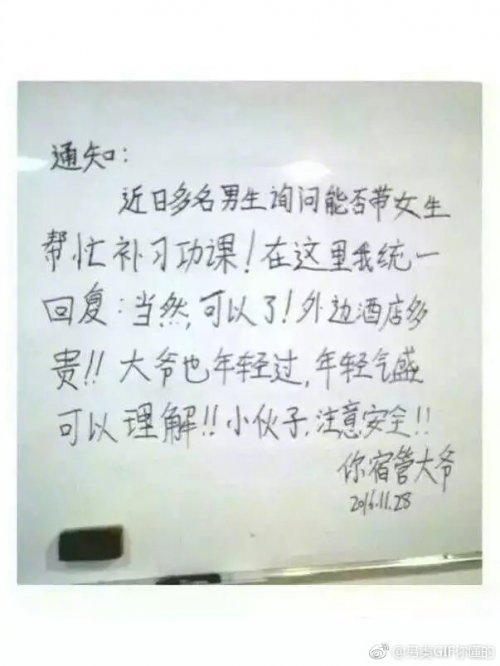 通知：
近日多名男生询问能否带女生
帮忙补习功课！在这里我统一
回复：当然，可以了！外边酒店多
贵！！大爷也年轻过，年轻气盛
可以理解！！小伙子，注意安全！！
你宿管大爷
2016.11.28